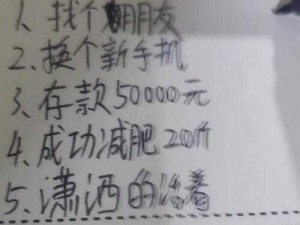 1、找个朋友
2、换个新手机
3、存款50000元
4、成功减肥20斤
5、潇洒的活着